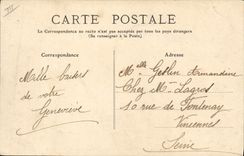 CARTE POSTALE
La Correspondance au recto n'est pas acceptée par tous les pays étrangers
(Se renseigner à la Poste).
Correspondance
Adresse
Mille baisers
de votre
Geneviève
Melle Armandine
Chez M. Lagros
10 rue de Fontenay
Vincennes
Seine